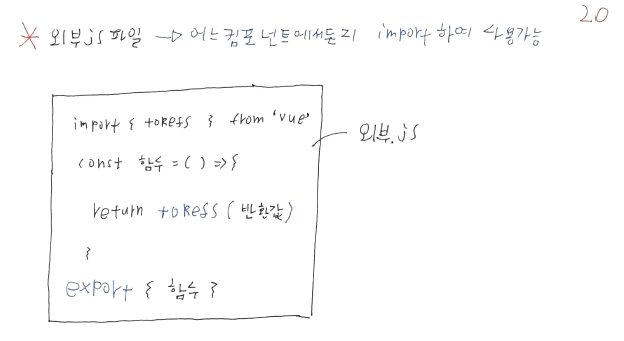 20
* 외부 js 파일 → 어느 컴포넌트에서든지 import 하여 사용가능
import { toRefs } from 'vue'
const 함수 = ( ) => {
외부.js
return toRefs ( 반환값 )
}
export { 함수 }